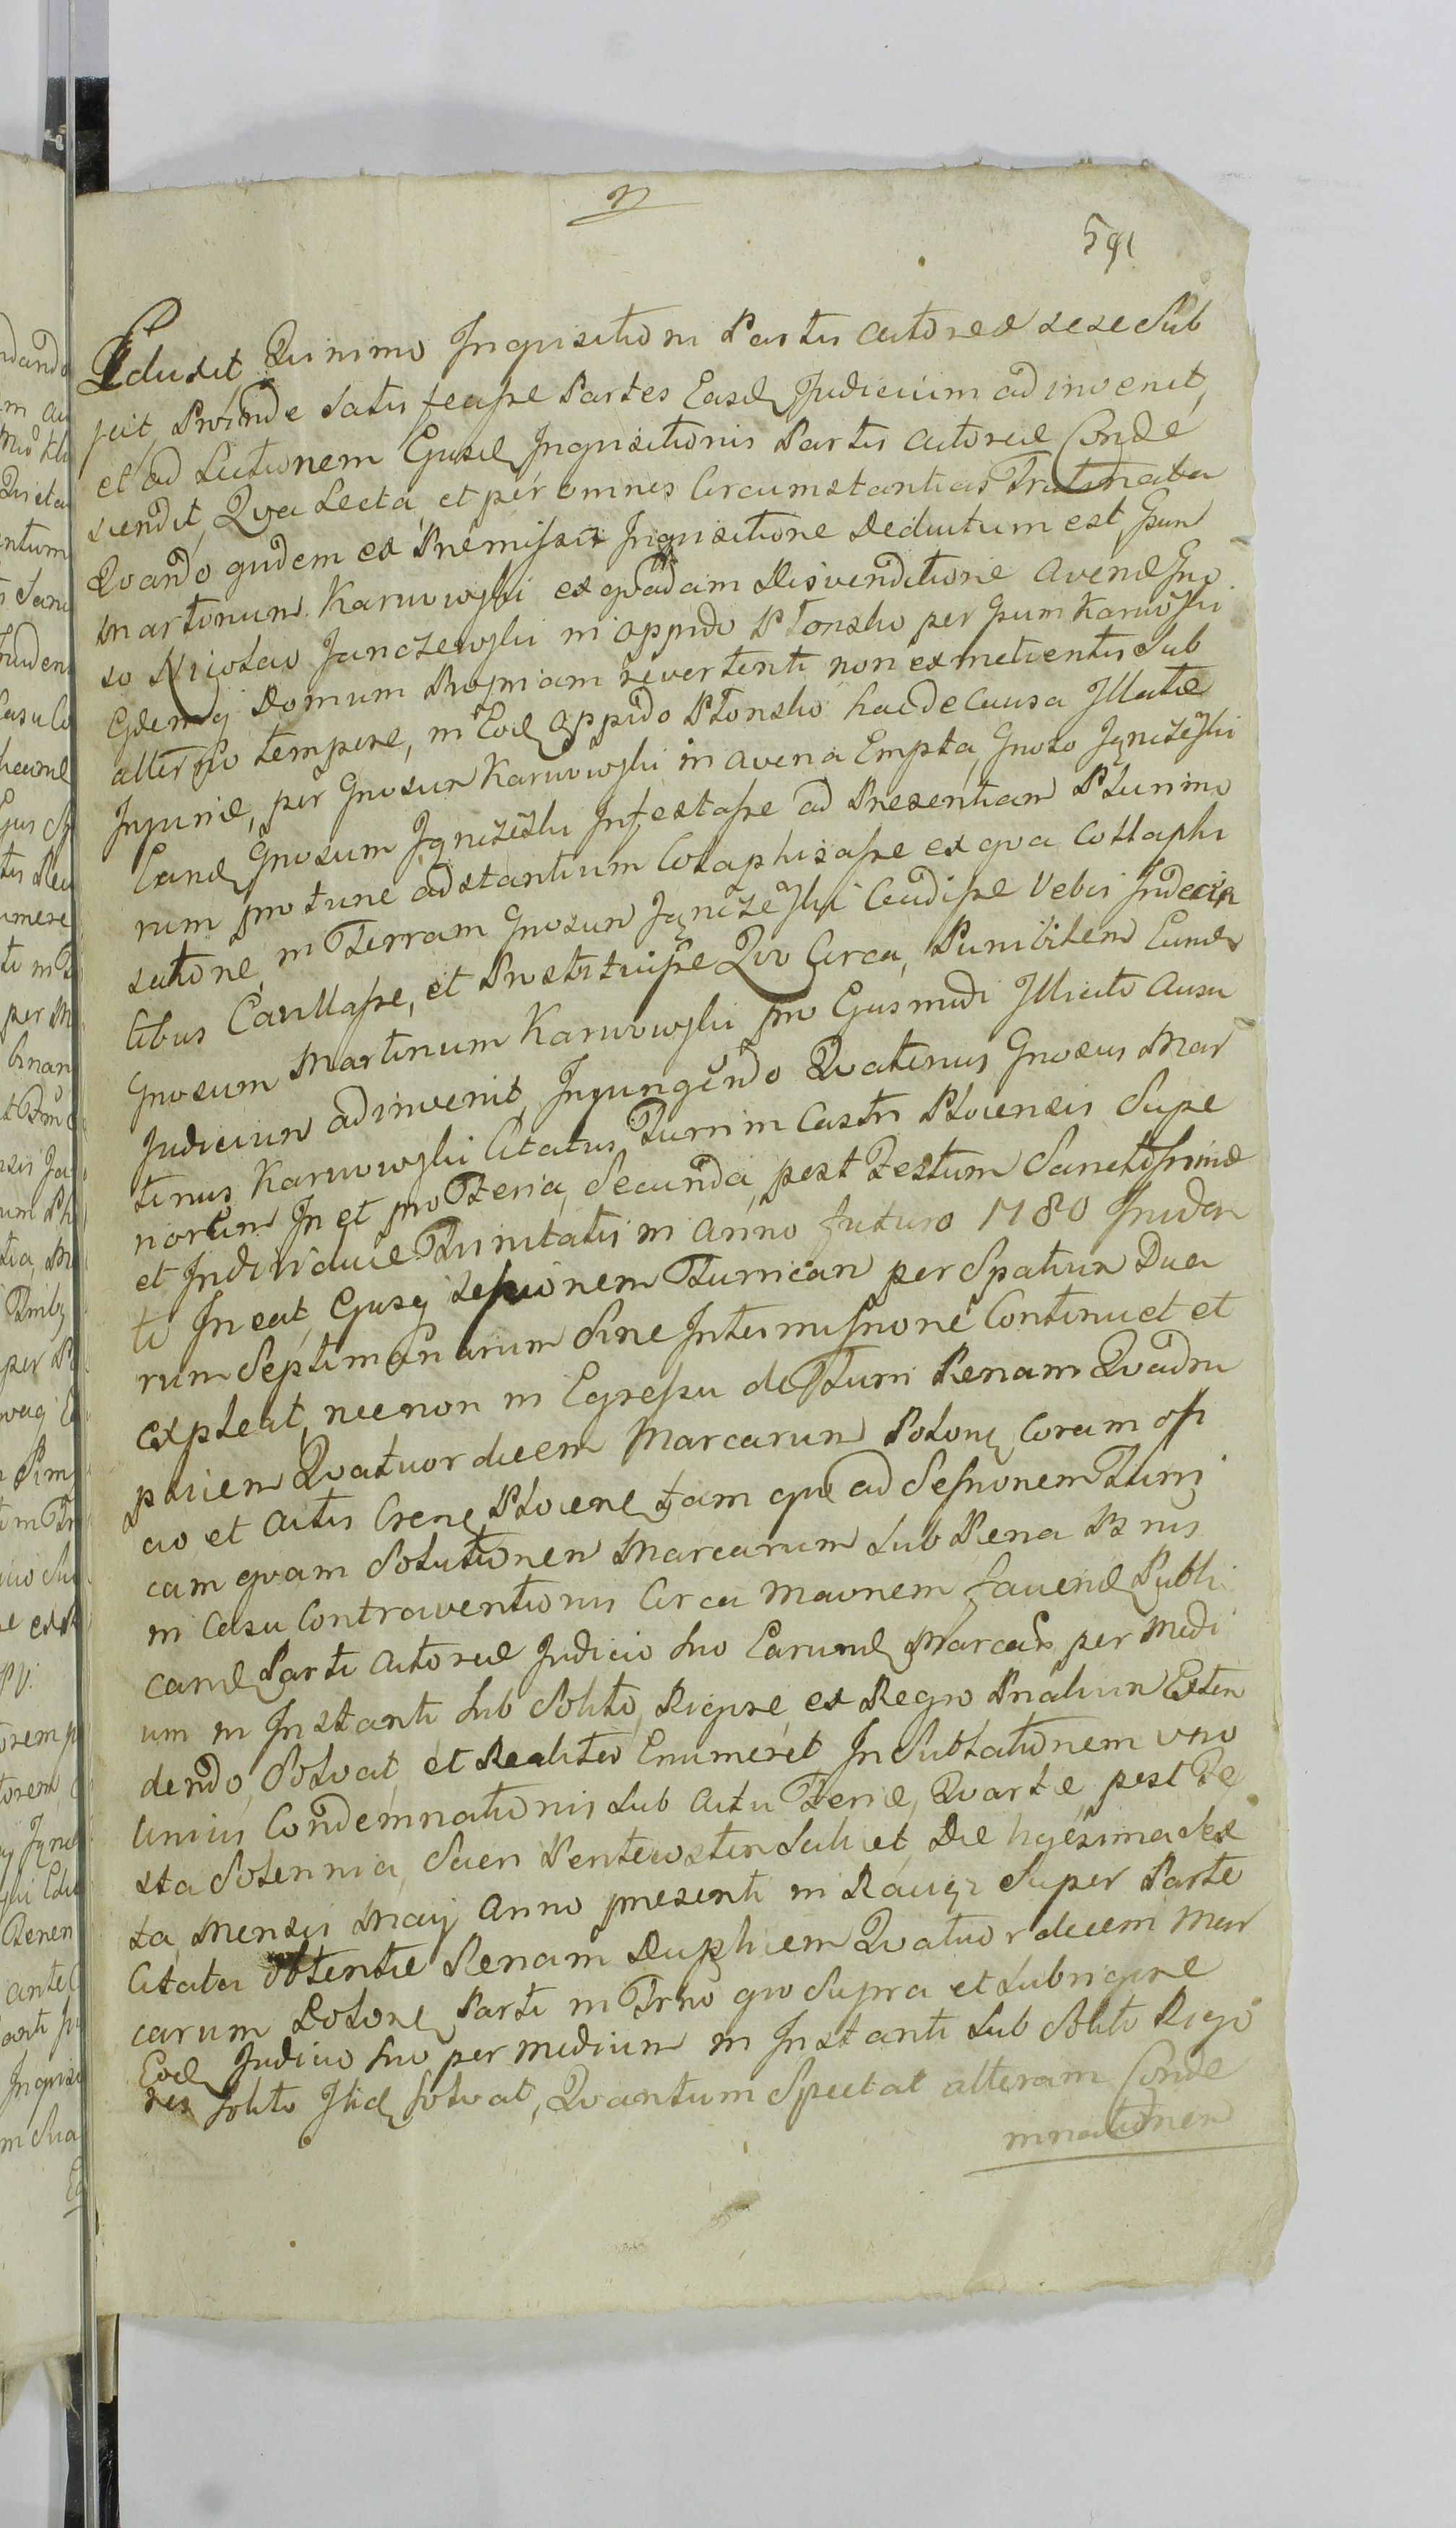 n
591
Eduxit, Qui nimo Inquisitioni Partis actoreæ sese Sub
jecit, Proinde Satis fecisse Partes Easd Judicium adinvenit,
et ad Lectionem Ejusd Inquisitionis Partis Actoreæ Conde
scendit, Qva Lecta, et per omnes Circumstantias Trutinata
Qvando qvidem ex Præmissa Inqvisitione Deductum est, Gsum
Martinum Karwowski ex qvadam Disvenditione Avenæ Gno
so Nicolao Janczewski in oppido Płonsko per Gsum Karwoski
Ejdemq Domum Propriam revertenti non exmetientis Sub
alterno tempore, in Eod oppido Płonsko hac de causa Illatæ
Injuriæ, per Gnosum Karwowski in avena Empta, Gnoso
Eund Gnosum Infestasse ad Presentiam Plurimo
rum pro tunc adstantium Colaphisasse ex qva Collaphi
satione, in Terram Gnosum Cecidisse Vebis Indecen
tibus Cavillasse, et Prostituisse Quo Circa, Punibilem Eund
Gnosum Martinum Karwowski pro Ejusmodi Illicito Ausu
Judicium adinvenit, Injungendo Qvatenus Gnosus Mar
tinus Karwowski Citatus, Turrim Castri Plocensis Supe
riorem In et pro Feria Secunda post Festum Sanctissimæ
et Individuæ Trinitatis in Anno futuro 1780 Inciden
ti Ineat, Ejusq Sessionem Turricam per Spatium Dua
rum Septimanarum Sine Intermissione Continuet et
expleat, necnon in Egressu de Turri Penam Qvadru
plicem Qvatuordecem Marcarum Polon Coram offi
cio et Actis Cren Plocen tam qve ad Sessionem Turri
cam qvam Solutionem Marcarum Sub Pena
in Casu Contraventionis Circa Maonem faciend Publi
cand Parti Actoreæ Judicio huo Earund Marcar per Medi
um in Instanti Sub Solito Rigore, ex Regro Exten
dendo, Solvat, et Realiter Enumeret In Sublationem vero
Unius Condemnationis Sub Actu Feriæ Qvartæ post Fe
sta Solennia Sacri Pentecosten Salicet, Die Sex
ta Mensis Maij Anno presenti in Raciąz Super Parte
Citata obtentæ Penam Duplicem Qvatuordecem Mar
carum Polon Parti in Trno qvo Supra et Subrigore
Eod Judicio huo per medium in Instanti Sub Solito Rigo
res Solito Itid Solvat, Qvantum Spectat alteram Conde
mnationem